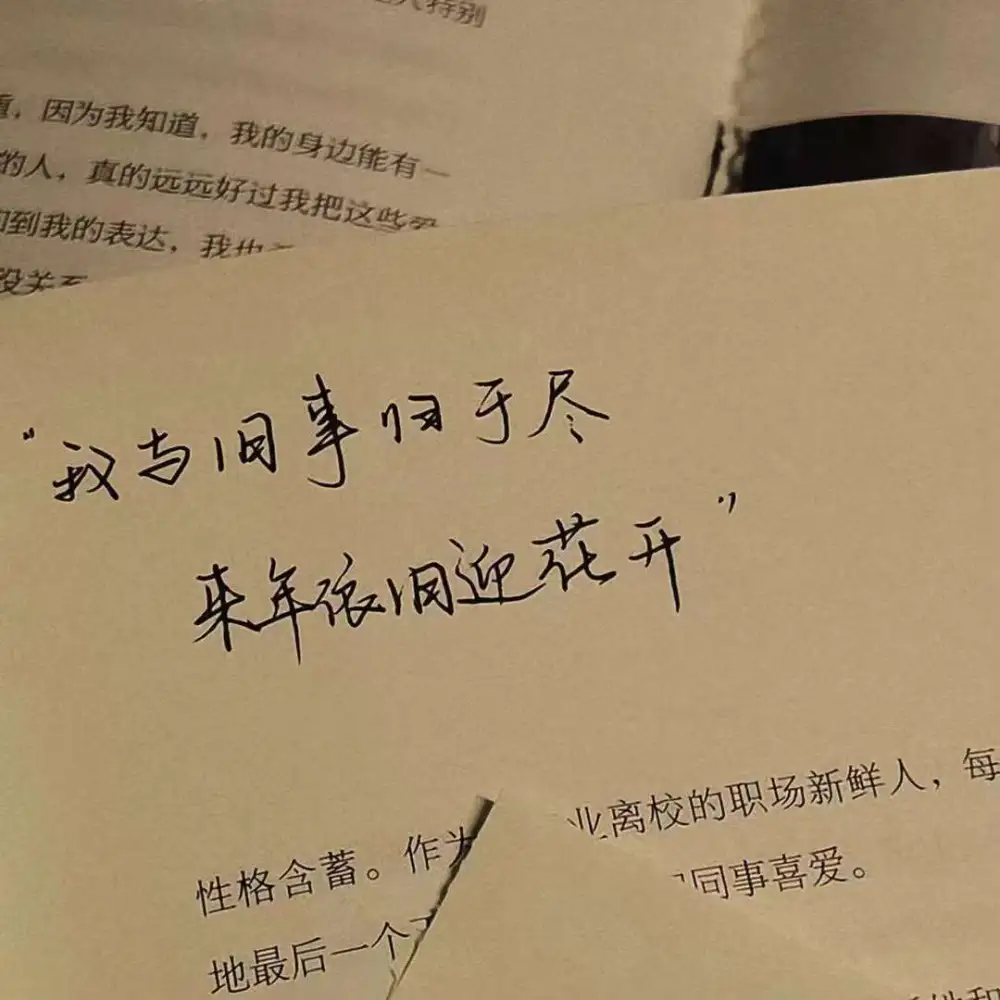 特别
，因为我知道，我的身边能有一
的人，真的远远好过我把这些
到我的表达，我也
没关
“我与旧事归于尽
来年依旧迎花开”
性格含蓄。作为 业离校的职场新鲜人，每
同事喜爱。
地最后一个
和